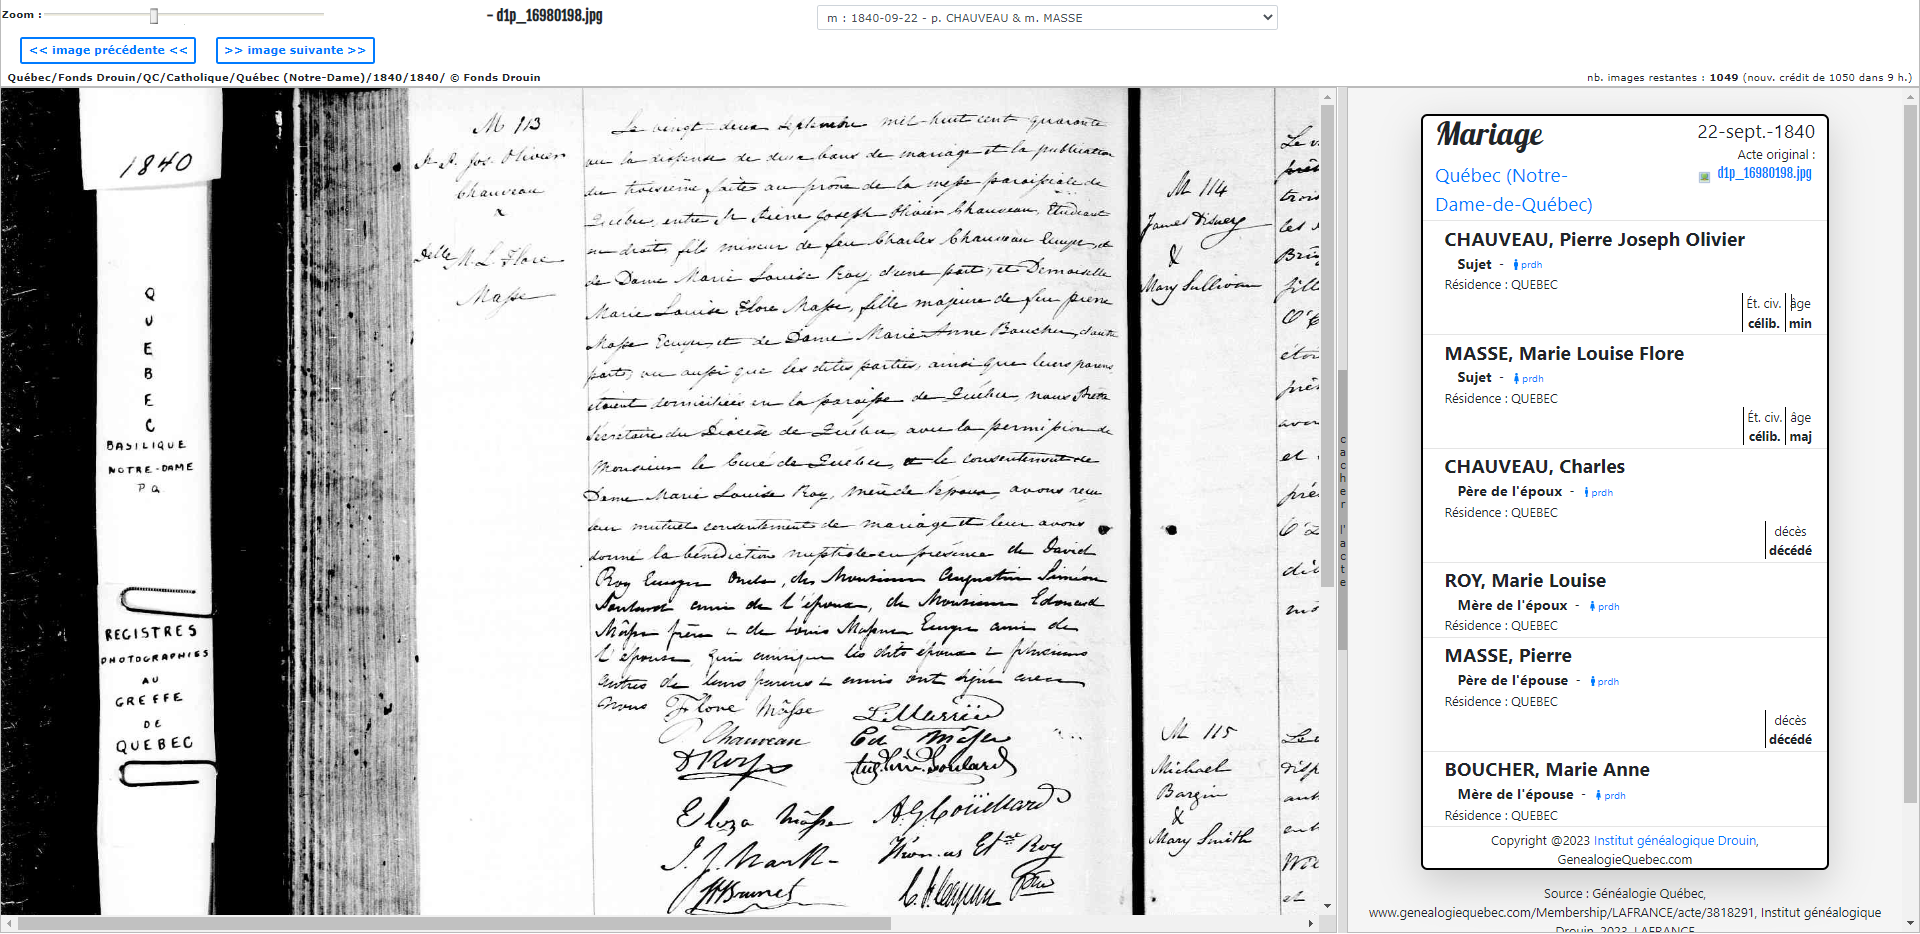 Zoom :
- d1p_16980198.jpg
m : 1840-09-22 - p. CHAUVEAU & m. MASSE
<< image précédente <<
>> image suivante >>
Québec/Fonds Drouin/QC/Catholique/Québec (Notre-Dame)/1840/1840/ © Fonds Drouin
nb. images restantes : 1049 (nouv. crédit de 1050 dans 9 h.)
1840
QUEBEC
BASILIQUE
NOTRE-DAME
P Q.
REGISTRES
PHOTOGRAPHIES
AU
GREFFE
DE
QUEBEC
M 113
Jos. Olivier
Chauveau
x
Delle M. L. Flore
Masse
Le vingt-deux septembre mil-huit cent quarante
vu la dispense de deux bans de mariage et la publication
du troisième faite au prône de la messe paroissiale de
Québec, entre Sr Pierre Joseph Olivier Chauveau, Etudiant
en droit, fils mineur de feu Charles Chauveau Ecuyer, et
de Dame Marie Louise Roy, d'une part; et Demoiselle
Marie Louise Flore Masse, fille majeure de feu pierre
Masse Ecuyer, et de Dame Marie Anne Boucher, d'autre
part; vu aussi que les dites parties, ainsi que leurs parens,
étoient domiciliées en la paroisse de Québec, nous Prêtre
Secrétaire du Diocèse de Québec, avec la permission de
Monsieur le Curé de Québec, et le consentement de
Dame Marie Louise Roy, mère de l'époux, avons reçu
leur mutuel consentement de mariage et leur avons
donné la bénédiction nuptiale en présence de David
Roy Ecuyer Oncle, de Monsieur Augustin Siméon
Soulard ami de l'époux, de Monsieur Edouard
Mâsse frère & de Louis Massue Ecuyer ami de
l'épouse, qui ainsi que les dits époux & plusieurs
autres de leurs parens & amis ont signé avec
nous Flore Mâsse
P. Chauveau Ed Mâsse
D Roy Soulard
Eliza Mâsse
Roy
M 114
James Disney
&
Mary Sullivan
M 115
Michael
Bargin
&
Mary Smith
cacher l'acte
Mariage
22-sept.-1840
Acte original :
d1p_16980198.jpg
Québec (Notre-
Dame-de-Québec)
CHAUVEAU, Pierre Joseph Olivier
Sujet - prdh
Résidence : QUEBEC
Ét. civ. âge
célib. min
MASSE, Marie Louise Flore
Sujet - prdh
Résidence : QUEBEC
Ét. civ. âge
célib. maj
CHAUVEAU, Charles
Père de l'époux - prdh
Résidence : QUEBEC
décès
décédé
ROY, Marie Louise
Mère de l'époux - prdh
Résidence : QUEBEC
MASSE, Pierre
Père de l'épouse - prdh
Résidence : QUEBEC
décès
décédé
BOUCHER, Marie Anne
Mère de l'épouse - prdh
Résidence : QUEBEC
Copyright @2023 Institut généalogique Drouin,
GenealogieQuebec.com
Source : Généalogie Québec,
www.genealogiequebec.com/Membership/LAFRANCE/acte/3818291, Institut généalogique
Drouin, 2023, LAFRANCE